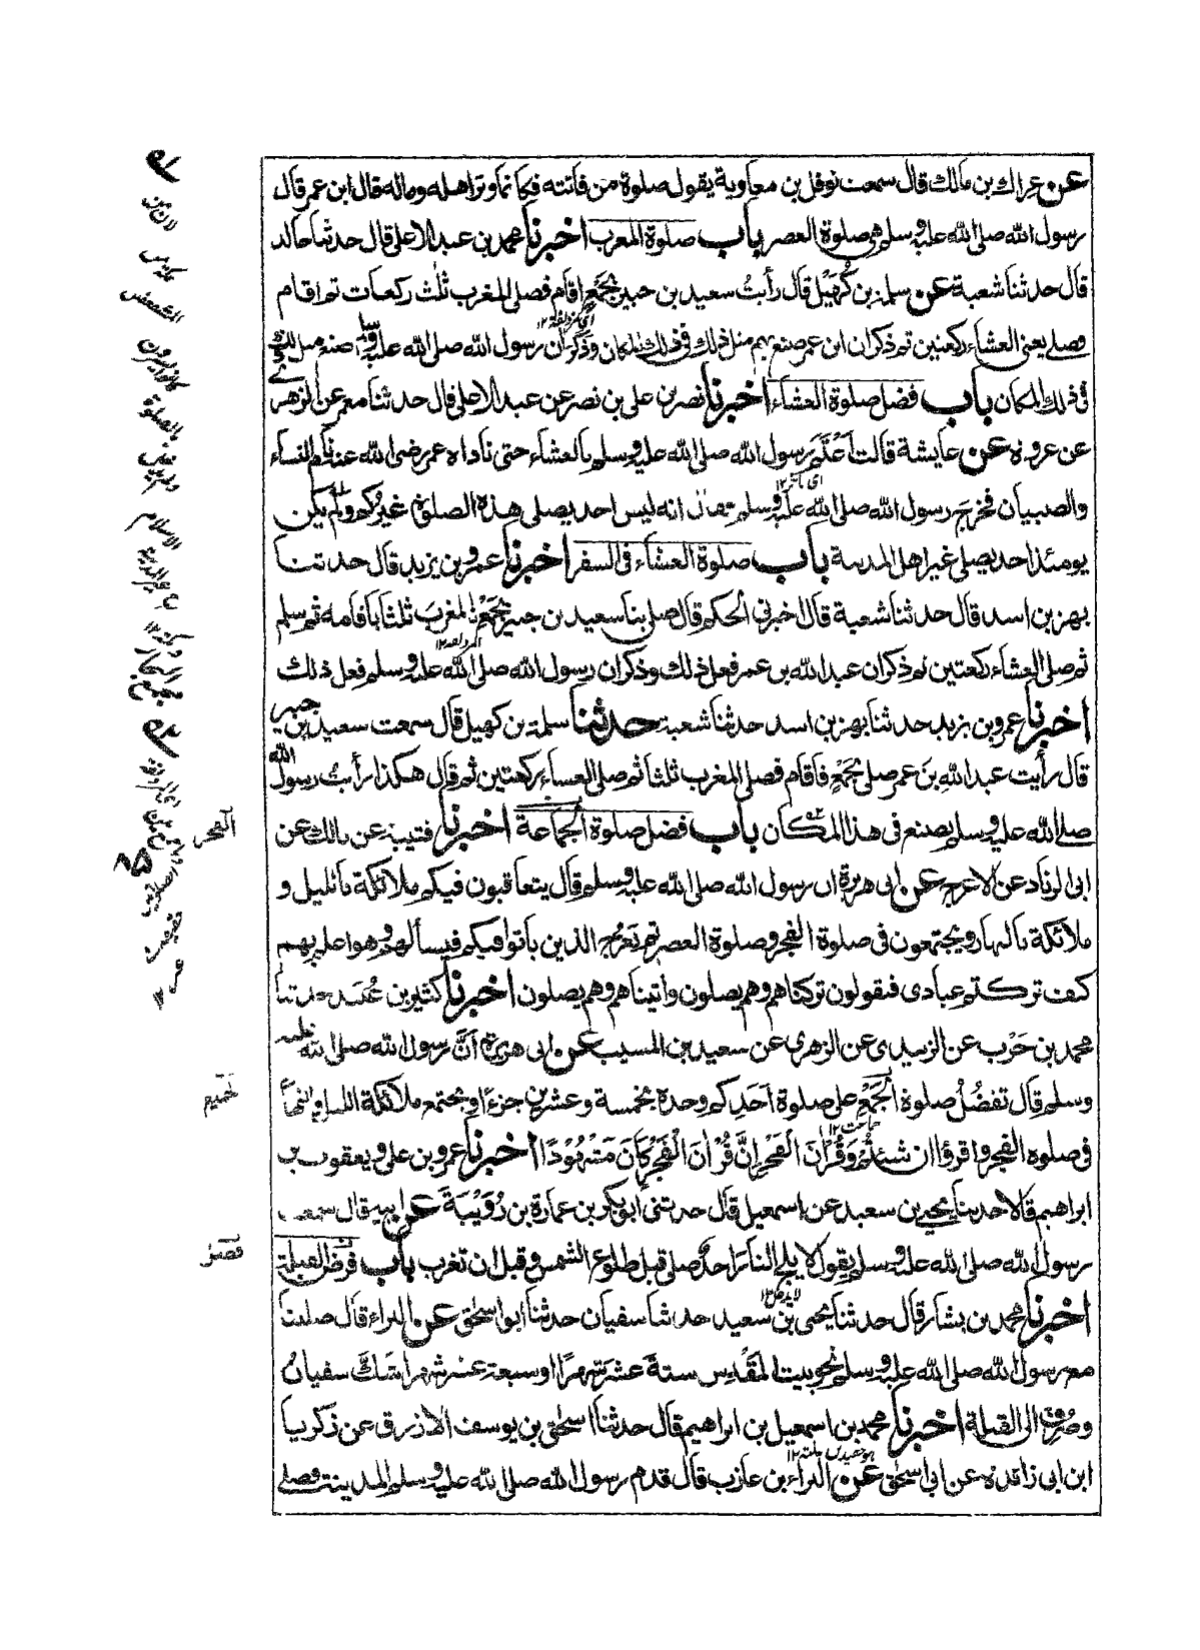 عن عراك بن مالك قال سمعت نوفل بن معاوية يقول صلوة من فاتته فكانما وتر اهله وماله قال ابن عمر قال
رسول الله صلى الله عليه وسلم هي صلوة العصر باب صلوة المغرب اخبرنا محمد بن عبد الاعلى قال حدثنا خالد
قال حدثنا شعبة عن سلمة بن كُهَيْل قال رأيتُ سعيد بن جبير بجَمْعٍ اقام فصلى المغرب ثلٰث ركعات ثم اقام
فصلى يعنى العشاء ركعتين ثم ذكر ان ابن عمر صنع بهم مثل ذلك فى ذلك المكان وذكر ان رسول الله صلى الله عليه وسلم صنع مثل ذلك
فى ذلك المكان باب فضل صلوة العشاء اخبرنا نصر بن على بن نصر عن عبد الاعلى قال حدثنا معمر عن الزهرى
عن عروة عن عايشة قالت اَعْتَمَ رسول الله صلى الله عليه وسلم بالعشاء حتى ناداه عمر رضى الله عنه نام النساء
والصبيان فخرج رسول الله صلى الله عليه وسلم فقال انه ليس احد يصلى هذه الصلوة غيركم ولم يكن
يومئذ احد يصلى غير اهل المدينة باب صلوة العشاء فى السفر اخبرنا عمرو بن يزيد قال حدثنا
بهز بن اسد قال حدثنا شعبة قال اخبرنى الحكم قال صلى بنا سعيد بن جبير بجَمْعٍ المغربَ ثلثا باقامة ثم سلم
ثم صلى العشاء ركعتين ثم ذكر ان عبد الله بن عمر فعل ذلك وذكر ان رسول الله صلى الله عليه وسلم فعل ذلك
اخبرنا عمرو بن يزيد حدثنا بهز بن اسد حدثنا شعبة حدثنا سلمة بن كهيل قال سمعت سعيد بن جبير
قال رأيت عبد الله بنَ عمر صلى بجَمْعٍ فاقام فصلى المغرب ثلثا ثم صلى العشاء ركعتين ثم قال هكذا رأيتُ رسول الله
صلى الله عليه وسلم يصنع فى هذا المكان باب فضل صلوة الجماعة اخبرنا قتيبة عن مالك عن
الفجر
ابى الزناد عن الاعرج عن ابى هريرة ان رسول الله صلى الله عليه وسلم قال يتعاقبون فيكم ملائكة بالليل و
ملائكة بالنهار ويجتمعون فى صلوة الفجر وصلوة العصر ثم يَعْرُج الذين باتوا فيكم فيسألهم وهو اعلم بهم
كيف تركتم عبادى فيقولون تركناهم وهم يصلون واتيناهم وهم يصلون اخبرنا كثير بن عُبَيد حدثنا
محمد بن حَرْب عن الزبيدى عن الزهرى عن سعيد بن المسيب عن ابى هريرة اَنَّ رسول الله صلى الله عليه
وسلم قال تفضُلُ صلوة الجَمْعِ على صلوة اَحَدِكم وحدهٗ بخمسة وعشرين جزءًا ويجتمع ملائكة الليل والنهار
فى صلوة الفجر واقرؤا ان شئتُمْ وَقُرْاٰنَ الْفَجْرِ اِنَّ قُرْاٰنَ الْفَجْرِ كَانَ مَشْهُوْدًا اخبرنا عمرو بن على ويعقوب بن
ابراهيم قالا حدثنا يحيى بن سعيد عن اسمعيل قال حدثنى ابو بكر بن عمارة بن رُوَيْبَةَ عن ابيه قال سمعت
رسول الله صلى الله عليه وسلم يقول لا يلج النارَ احدٌ صلى قبل طلوع الشمس وقبل ان تغرب باب فرض القبلة
اخبرنا محمد بن بشار قال حدثنا يحيى بن سعيد حدثنا سفيان حدثنا ابو اسحٰق عن البراء قال صلينا
مع رسول الله صلى الله عليه وسلم نحو بيت المَقْدِس ستة عشر شهرًا او سبعة عشر شهرا شَكَّ سفيانُ
وصُرِفَ الى القبلة اخبرنا محمد بن اسمعيل بن ابراهيم قال حدثنا اسحٰق بن يوسف الازرق عن زكريا
ابن ابى زائدة عن ابى اسحٰق عن البراء بن عازب قال قدم رسول الله صلى الله عليه وسلم المدينة فصلى